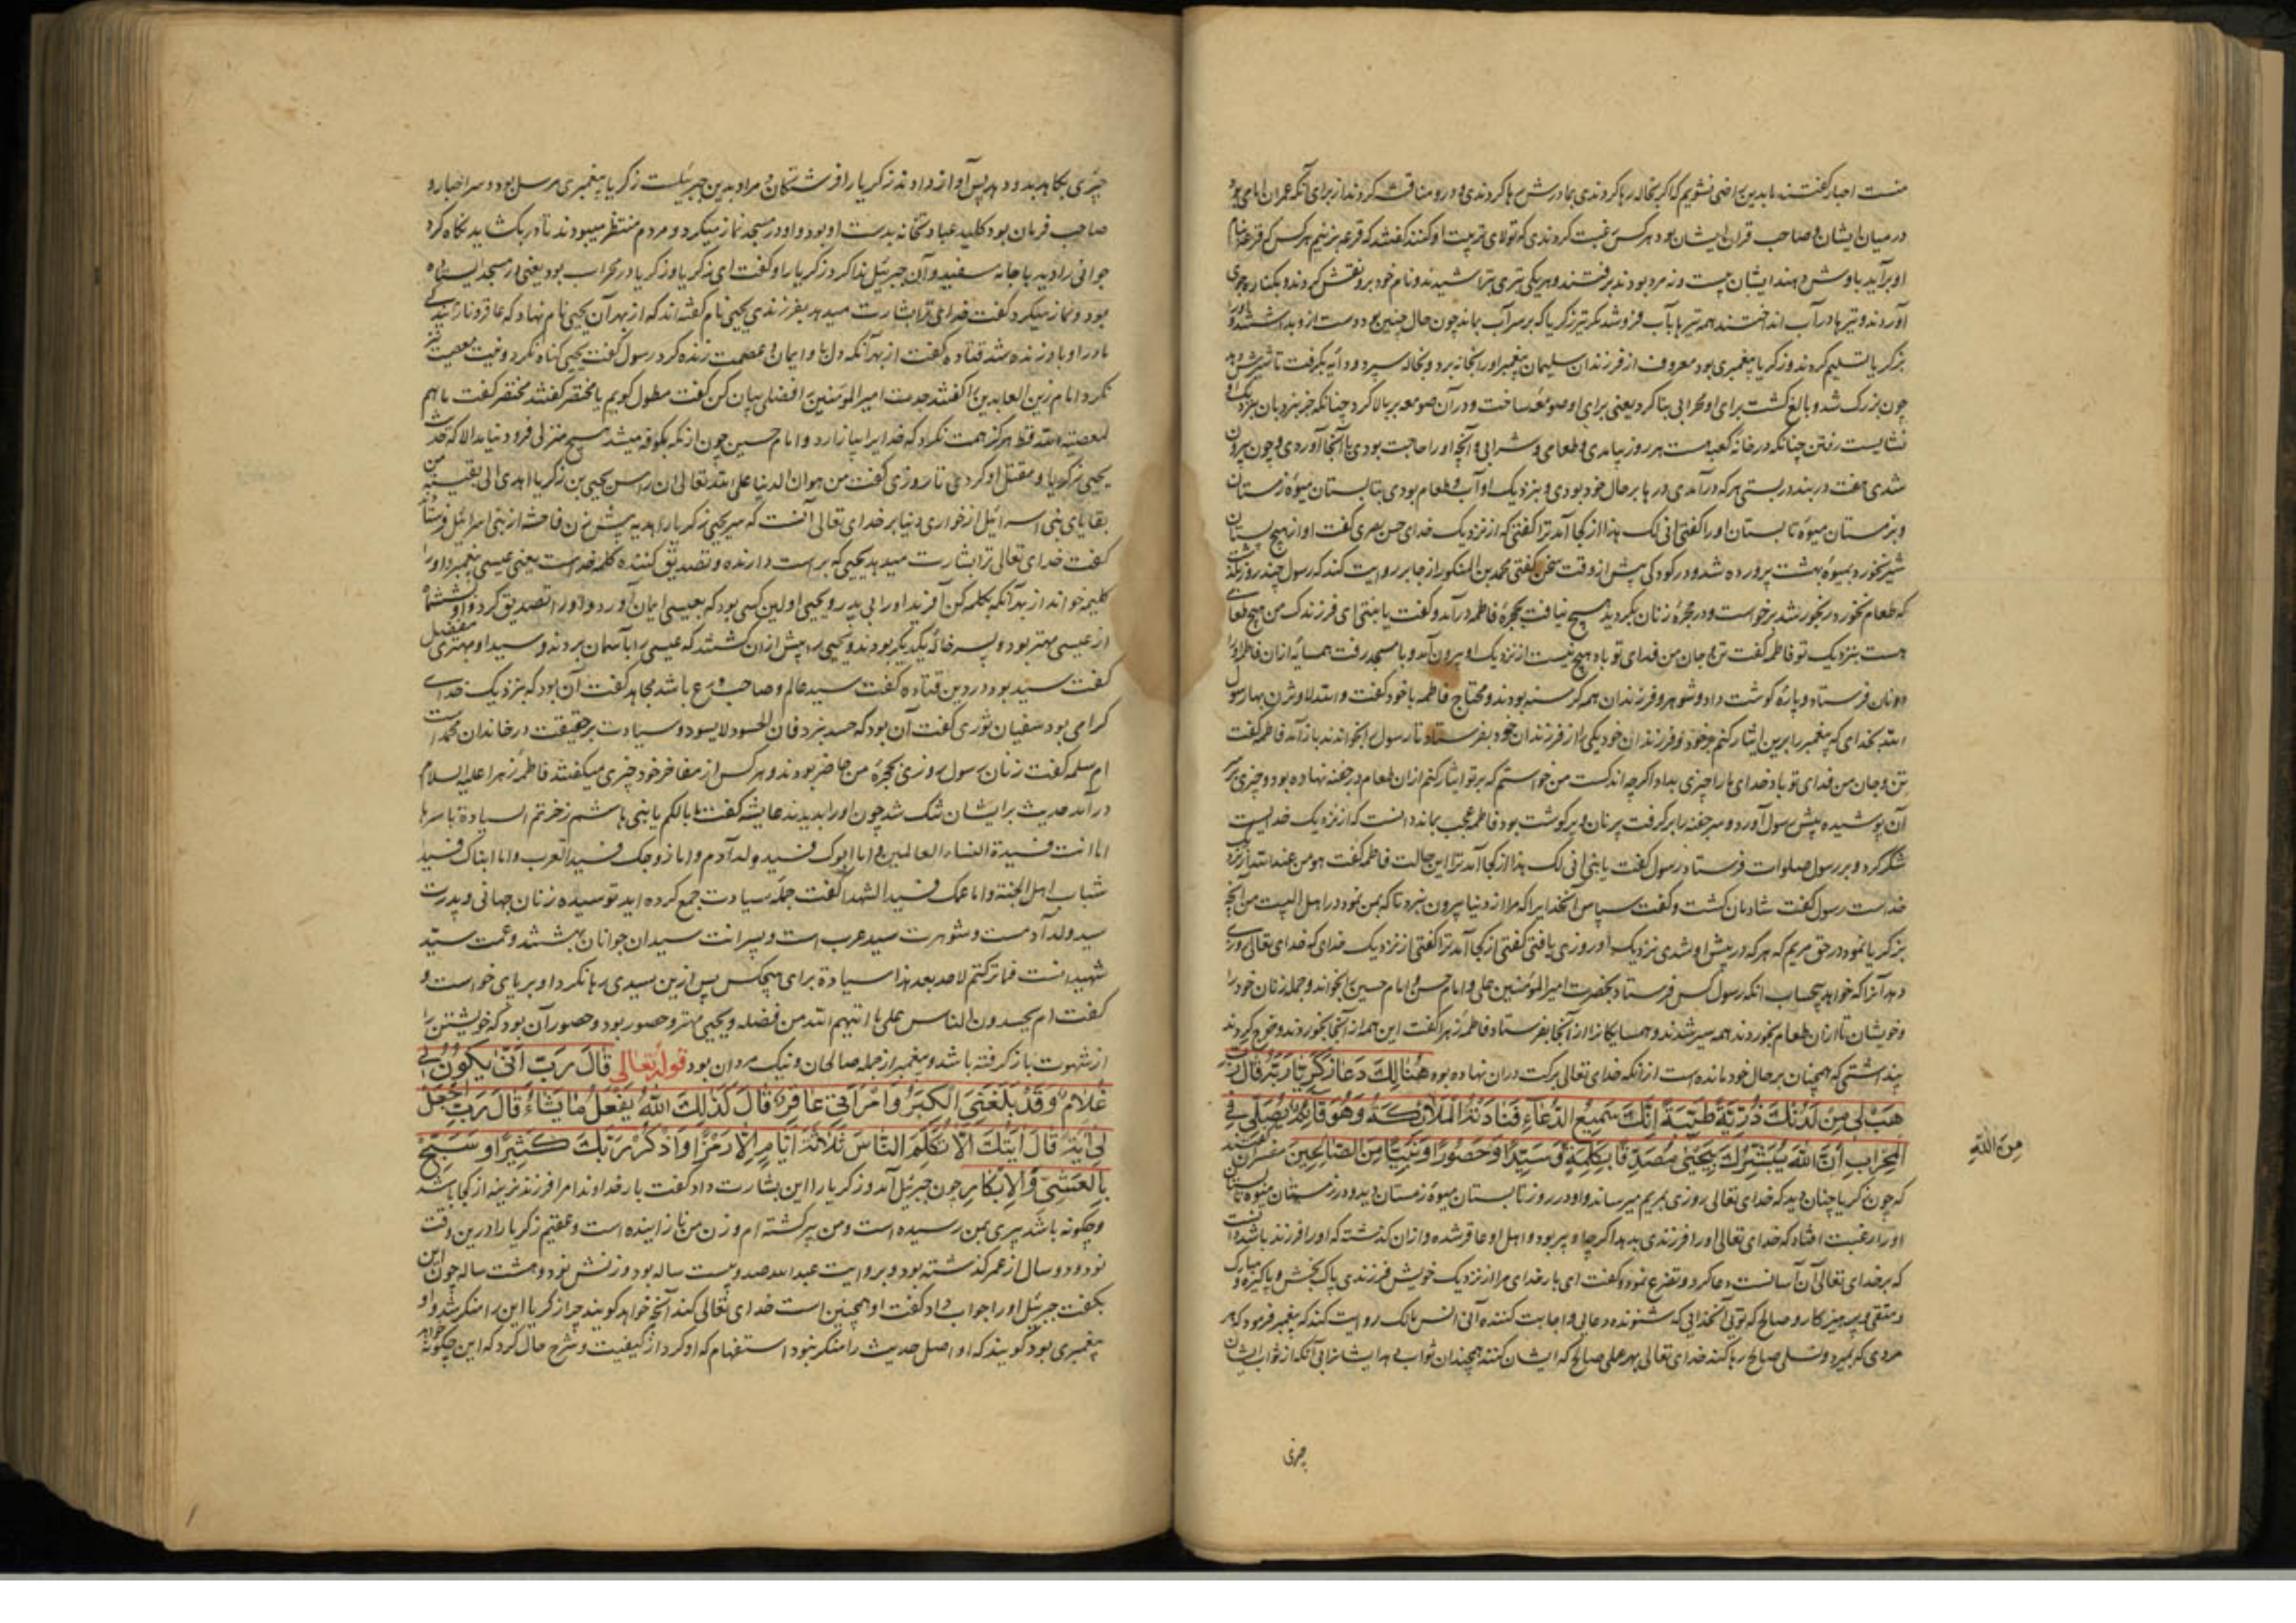 منست احبار گفتند ما بدین راضی نشویم که اگر بخاله رها کردندی بمادرش رها کردندی و درو مناقشه کردند از برای آنکه عمران امام بود
در میان ایشان و صاحب قران ایشان بود هر کس رغبت کردندی که تولای تربیت او کنند گفتند که قرعه بزنیم هر کس که قرعه بنام
او برآید باوش دهند ایشان بیست و نه مرد بودند برفتند و هر یکی تیری بتراشیدند و نام خود برو نقش کردند و بکنار جوی
آوردند و تیرها در آب انداختند همه تیرها بآب فرو شد مگر تیر زکریا که بر سر آب بماند چون حال چنین بود دست ازو بداشتند و او را
بزکریا تسلیم کردند و زکریا پیغمبری بود معروف از فرزندان سلیمان پیغمبر او را بخانه برد و بخاله سپرد و دایه بگرفت تا شیرش دهد
چون بزرگ شد و بالغ گشت برای او محرابی بنا کرد یعنی برای او صومعه ساخت و در آن صومعه بر بالا کرد چنانکه جز بنردبان بنزدیک او
نشایست رفتن چنانکه در خانه کعبه است هر روز بیامدی و طعامی و شرابی و آنچه او را حاجت بودی با آنجا آوردی و چون بیرون
شدی هفت در بند در بستی هر که در آمدی درها بر حال خود بودی و بنزدیک او آب و طعام بودی بتابستان میوه زمستان
و بزمستان میوه تابستان او را گفتی انی لک هذا از کجا آمد ترا گفتی که از نزدیک خدای حسن بصری گفت او از هیچ پستان
شیر نخورد بمیوه بهشت پرورده شد و در کودکی پیش از وقت سخن گفتی محمد بن المنکدر از جابر روایت کند که رسول چند روز بگذشت
که طعام نخورد رنجور شد برخواست و در حجره زنان بگردید هیچ نیافت بحجره فاطمه در آمد و گفت یا بنتی ای فرزندک من هیچ طعامی
هست بنزدیک تو فاطمه گفت تن و جان من فدای تو باد هیچ نیست از نزدیک او بیرون آمد و با مسجد رفت همسایه از ان فاطمه او را
دو نان فرستاد و پاره گوشت داد و شوهر و فرزندان همه گرسنه بودند و محتاج فاطمه با خود گفت والله لاوثرن بها رسول
الله بخدای که پیغمبر را برین ایثار کنم بر خود و فرزندان خود یکی را از فرزندان خود بفرستاد تا رسول را بخواندند باز آمد فاطمه گفت
تن و جان من فدای تو باد خدای ما را چیزی بداد اگرچه اندکست من خواستم که بر تو ایثار کنم از ان طعام در جفنه نهاده بود و چیزی بر سر
آن پوشیده پیش رسول آورد و سر جفنه را بر گرفت پر نان و پر گوشت بود فاطمه عجب بماند دانست که از نزدیک خداست
شکر کرد و بر رسول صلوات فرستاد رسول گفت یا بنی انی لک هذا از کجا آمد ترا این حالت فاطمه گفت هو من عند الله از نزد
خداست رسول گفت شادمان گشت و گفت سپاس آنخدایرا که مرا از دنیا بیرون نبرد تا که بمن نمود در اهل البیت من آنچه
بزکریا نمود در حق مریم که هر که در پیش او شدی نزدیک او روزی یافتی گفتی از کجا آمد ترا گفتی از نزدیک خدای که خدای تعالی روزی
دهد آنرا که خواهد بیحساب انگه رسول کس فرستاد بحضرت امیر المؤمنین علی و امام حسن و امام حسین را بخواند و جمله زنان خود را
و خویشان تا از ان طعام بخوردند همه سیر شدند و همسایگانرا از آنجا بفرستاد فاطمه زهرا گفت این همه از آنجا بخوردند و خرج کردند
پنداشتی که همچنان بر حال خود مانده است از آنکه خدای تعالی برکت در ان نهاده بود هُنَالِكَ دَعَا زَكَرِيَّا رَبَّهُ قَالَ رَبِّ
هَبْ لِي مِنْ لَدُنْكَ ذُرِّيَّةً طَيِّبَةً إِنَّكَ سَمِيعُ الدُّعَاءِ فَنَادَتْهُ الْمَلَائِكَةُ وَهُوَ قَائِمٌ يُصَلِّي فِي
الْمِحْرَابِ أَنَّ اللَّهَ يُبَشِّرُكَ بِيَحْيَى مُصَدِّقًا بِكَلِمَةٍ وَسَيِّدًا وَحَصُورًا وَنَبِيًّا مِنَ الصَّالِحِينَ مفسران گفتند
مِنَ اللَّهِ
که چون زکریا چنان دید که خدای تعالی روزی بمریم میرساند و او در روز تابستان میوه زمستان دید و در زمستان میوه تابستان
او را رغبت افتاد که خدای تعالی او را فرزندی بدهد اگرچه او پیر بود و اهل او عاقر شده و از ان گذشته که او را فرزند باشد دانست
که بر خدای تعالی آن آسانست دعا کرد و تضرع نمود و گفت ای بار خدای مرا از نزدیک خویش فرزندی پاک بخش و پاکیزه و مبارک
و متقی و پرهیزکار و صالح که توئی آنخدائی که شنونده دعایی و اجابت کننده آنی انس مالک روایت کند که پیغمبر فرمود که هر
مردی که بمیرد و نسلی صالح رها کند خدای تعالی بهر عملی صالح که ایشان کنند همچندان ثواب دهد ایشانرا بی آنکه از ثواب ایشان
چیزی
چیزی بکاهد بدو دهد پس آواز دادند زکریا را فرشتگان و مراد بدین جبرئیلست زکریا پیغمبری مرسل بود و سر احبار و
صاحب قربان بود کلید عبادتخانه بدست او بود و او در مسجد نماز میکرد و مردم منتظر میبودند تا در بگشاید نگاه کرد
جوانی را دید با جامه سفید و آن جبرئیل ندا کرد زکریا را و گفت ای زکریا و زکریا در محراب بود یعنی در مسجد ایستاده
بود و نماز میکرد گفت خدای ترا بشارت میدهد بفرزندی یحیی نام گفته اند که از بهر آن یحیی نام نهاد که عاقر و نازاینده
مادر او باو زنده شد قتاده گفت از بهر آنکه دل ما و ایمان و عصمت زنده کرد رسول گفت یحیی گناه نکرد و نیت معصیت نیز
نکرد امام زین العابدین را گفتند جدت امیر المؤمنین افضل بیان کن گفت مطول گویم یا مختصر گفتند مختصر گفت ما هم
لمعصیة الله قط هرگز همت نکرد که خدایرا بیازارد و امام حسین چون از مکه بکوفه میشد هیچ منزلی فرو نیامد الا که حدیث
یحیی زکریا و مقتل او کردی تا روزی گفت من هوان الدنیا علی الله تعالی ان راس یحیی بن زکریا اهدی الی بغیة من
بغایای بنی اسرائیل از خواری دنیا بر خدای تعالی آنست که سر یحیی زکریا را هدیه پیش زن فاحشه از بنی اسرائیل فرستاد
گفت خدای تعالی ترا بشارت میدهد یحیی که براست دارنده و تصدیق کننده کلمه خداست یعنی عیسی پیغمبر و او را
کلمه خواند از بهر آنکه بکلمه کن آفرید او را بی پدر و یحیی اولین کسی بود که بعیسی ایمان آورد و او را تصدیق کرد و او ششماه
از عیسی مهتر بود و پسر خاله یکدیگر بودند و یحیی را پیش از ان کشتند که عیسی را بآسمان بردند و سیدا و مهتری مفضل
گفت سید بود در دین قتاده گفت سید عالم و صاحب ورع باشد مجاهد گفت آن بود که بنزدیک خدای
گرامی بود سفیان ثوری گفت آن بود که حسد نبرد فان الحسود لا یسود و سیادت بر حقیقت در خاندان محمد است
ام سلمه گفت زنان رسول روزی بحجره من حاضر بودند و هر کس از مفاخر خود چیزی میگفتند فاطمه زهرا علیها السلام
در آمد حدیث بر ایشان تنگ شد چون او را بدیدند عایشه گفت ما بالکم یا بنی هاشم زخرتم السیادة باسرها
اما انت فسیدة النساء العالمین و اما ابوک فسید ولد آدم و اما زوجک فسید العرب و اما ابناک فسیدا
شباب اهل الجنة و اما عمک فسید الشهدا گفت جمله سیادت جمع کرده اید تو سیده زنان جهانی و پدرت
سید ولد آدمست و شوهرت سید عربست و پسرانت سیدان جوانان بهشتند و عمت سید
شهیدانست فما ترکتم لاحد بعد هذا سیادة برای هیچکس پس ازین سیدی رها نکرد او بر پای خواست و
گفت ام یحسدون الناس علی ما اتیهم الله من فضله و یحیی مهتر و حصور بود و حصور آن بود که خویشتن را
از شهوت باز گرفته باشد و پیغمبر از جمله صالحان و نیک مردان بود قوله تعالى قَالَ رَبِّ أَنَّى يَكُونُ لِي
غُلَامٌ وَقَدْ بَلَغَنِيَ الْكِبَرُ وَامْرَأَتِي عَاقِرٌ قَالَ كَذَلِكَ اللَّهُ يَفْعَلُ مَا يَشَاءُ قَالَ رَبِّ اجْعَلْ
لِي آيَةً قَالَ آيَتُكَ أَلَّا تُكَلِّمَ النَّاسَ ثَلَاثَةَ أَيَّامٍ إِلَّا رَمْزًا وَاذْكُرْ رَبَّكَ كَثِيرًا وَسَبِّحْ
بِالْعَشِيِّ وَالْإِبْكَارِ چون جبرئیل آمد و زکریا را این بشارت داد گفت بار خداوندا مرا فرزند نرینه از کجا باشد
و چگونه باشد پیری بمن رسیده است و من پیر گشته ام و زن من نازاینده است و عقیم زکریا را درین وقت
نود و دو سال از عمر گذشته بود و بروایت عبدالله صد و بیست ساله بود و زنش نود و هشت ساله چون این
بگفت جبرئیل او را جواب داد گفت او همچنین است خدای تعالی کند آنچه خواهد گویند چرا زکریا این را منکر شد و او
پیغمبری بود گویند که او اصل حدیث را منکر نبود استفهام که او کرد از کیفیت و شرح حال کرد که این چگونه خواهد